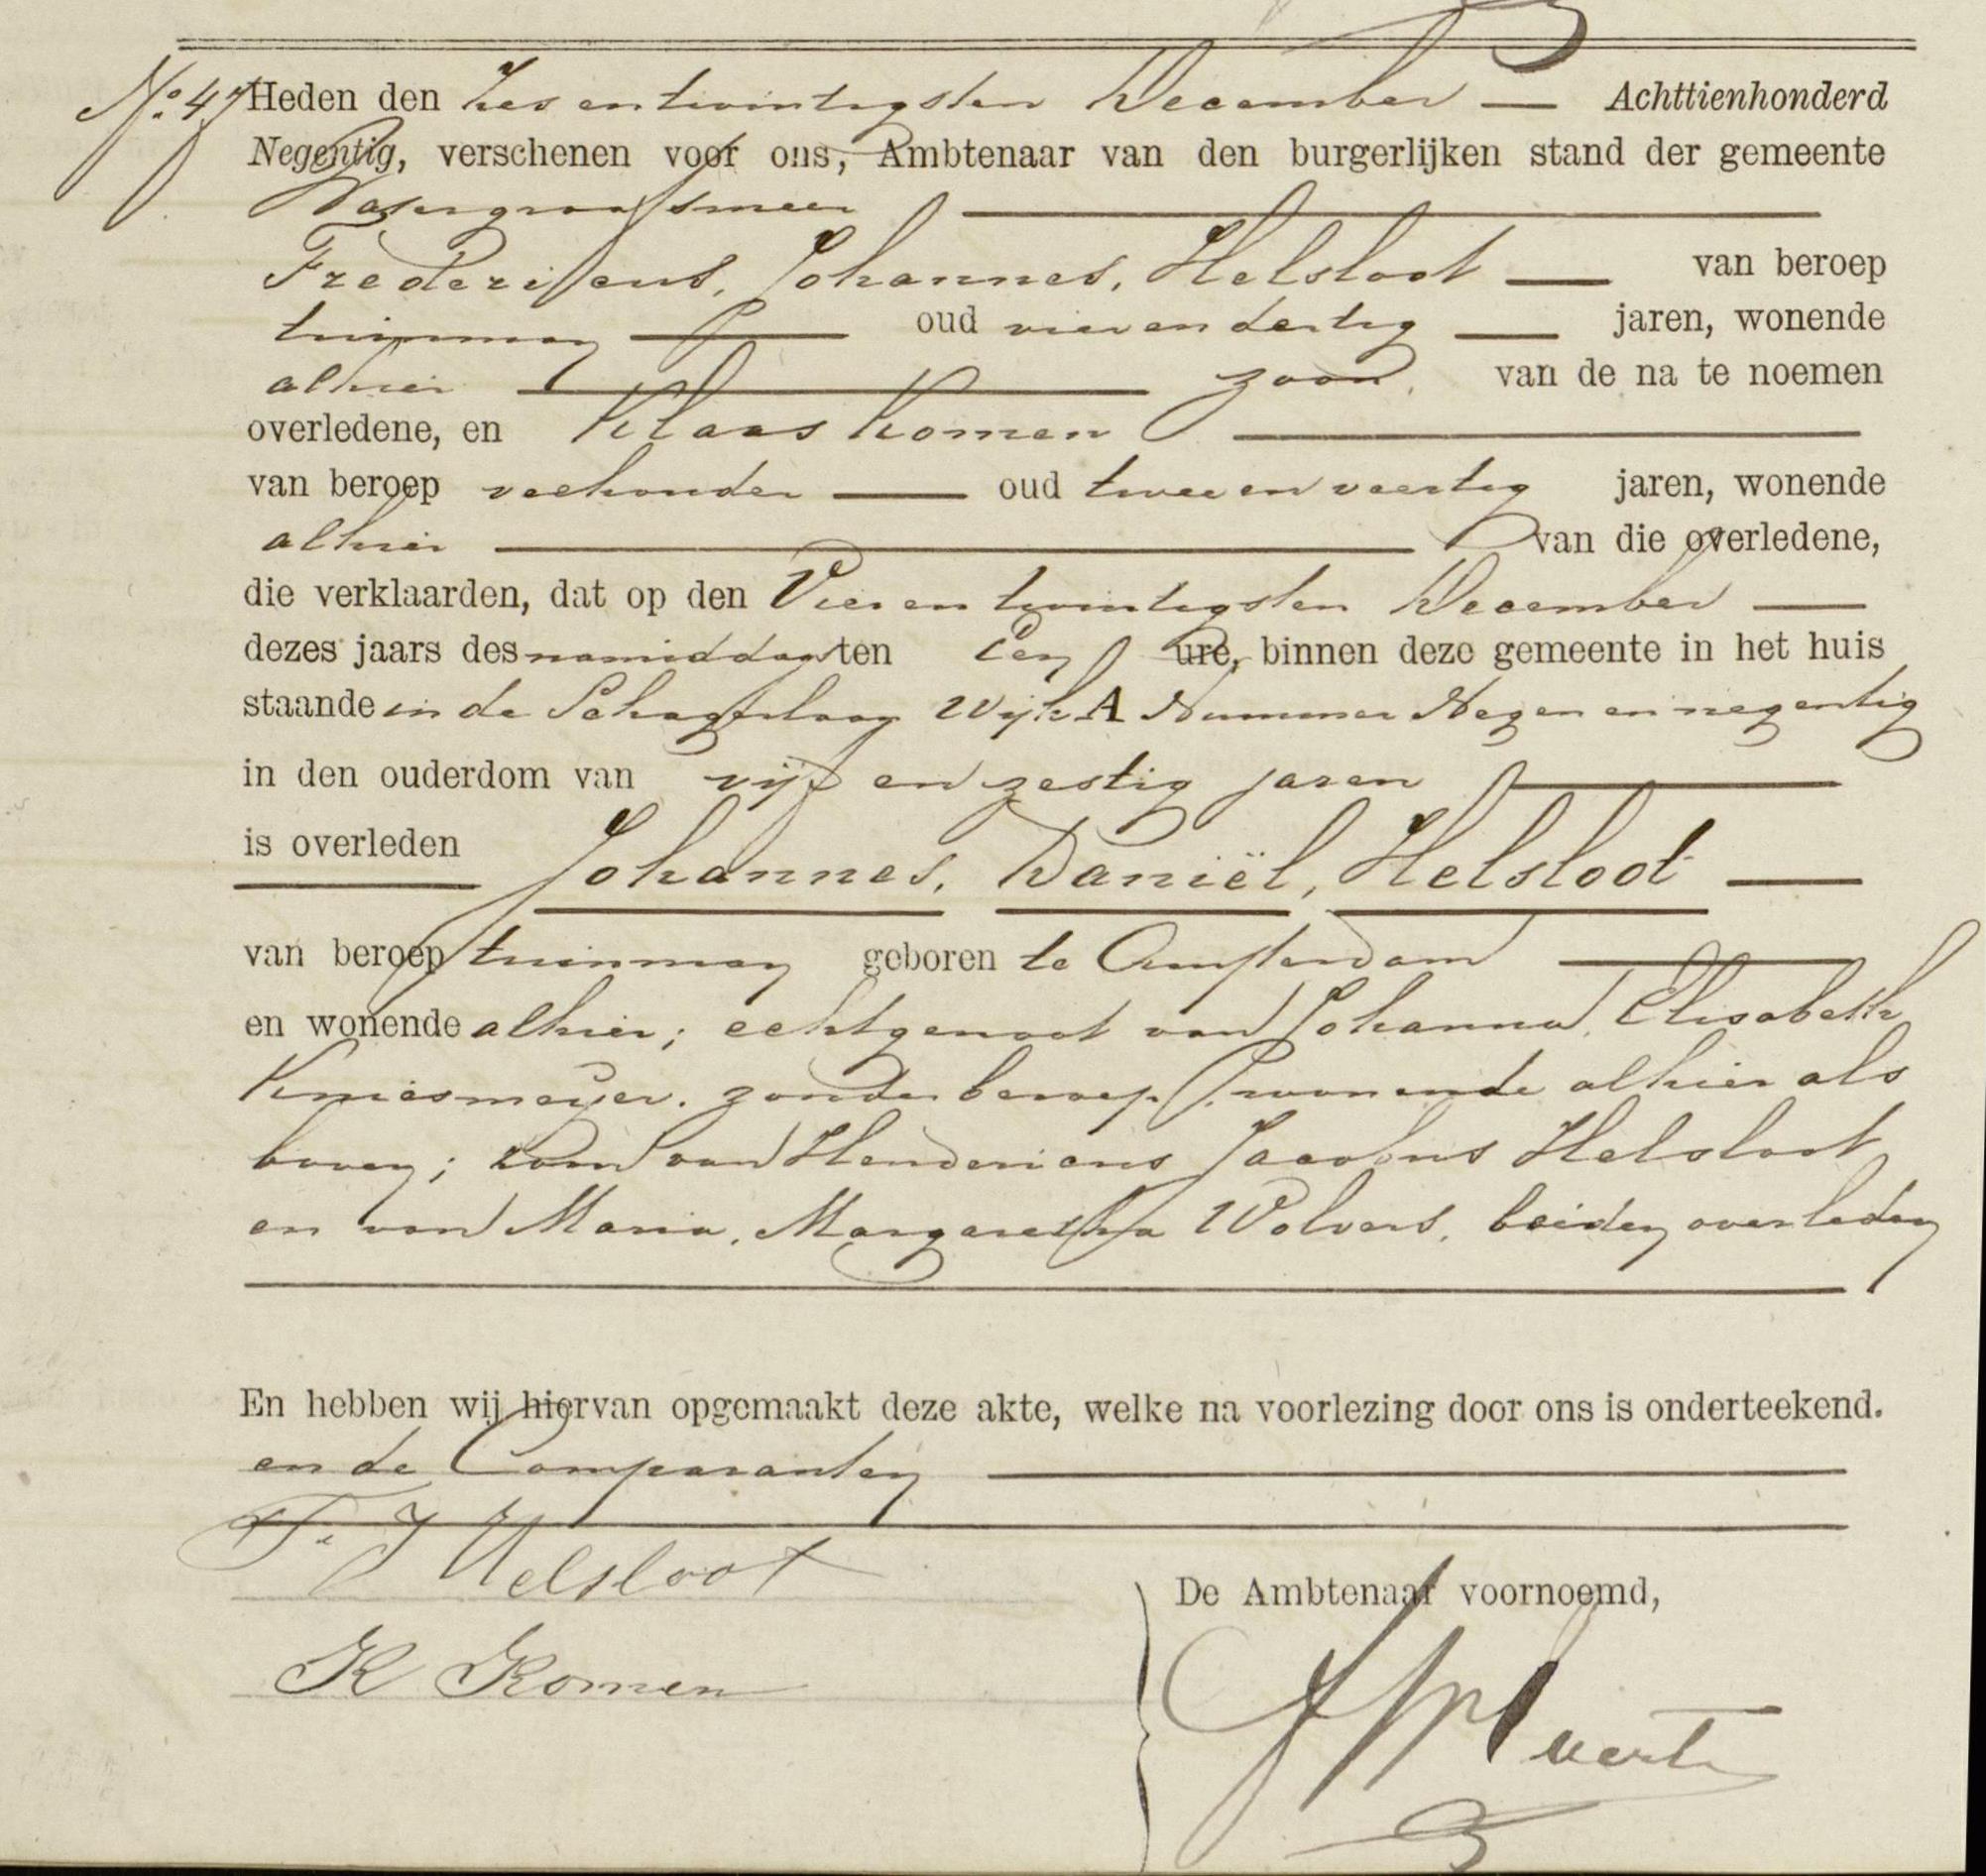 No. 47 Heden den Zes en twintigsten December — Achttienhonderd
Negentig, verschenen voor ons, Ambtenaar van den burgerlijken stand der gemeente
Watergraafsmeer
Fredericus, Johannes, Helsloot — van beroep
tuinman — oud vier en dertig — jaren, wonende
alhier — zoon van de na te noemen
overledene, en Klaas Komen —
van beroep veehouder — oud twee en veertig jaren, wonende
alhier — van die overledene,
die verklaarden, dat op den Vier en twintigsten December —
dezes jaars des namiddags ten Een ure, binnen deze gemeente in het huis
staande in de Schagerlaan Wijk A Nummer Negen en negentig
in den ouderdom van vijf en zestig jaren —
is overleden Johannes, Daniël, Helsloot —
van beroep tuinman geboren te Amsterdam —
en wonende alhier; echtgenoot van Johanna, Elisabeth
Kniesmeijer. zonder beroep, wonende alhier als
boven; zoon van Hendericus Jacobus Helsloot
en van Maria, Margaretha Wolvers, beiden overleden
En hebben wij hiervan opgemaakt deze akte, welke na voorlezing door ons is onderteekend.
en de Comparanten —
F. J Helsloot
De Ambtenaar voornoemd,
K Komen